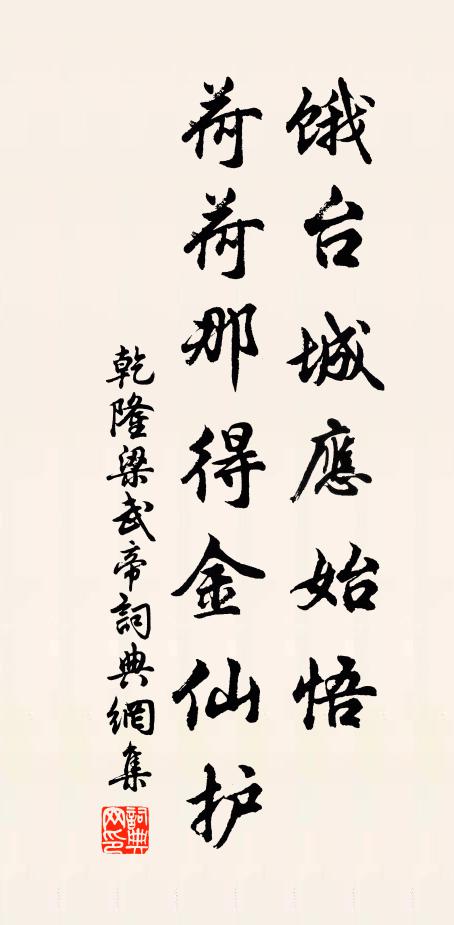 饿台城應始悟
荷荷那得金仙护
乾隆梁武帝詞典網集
詞典网印